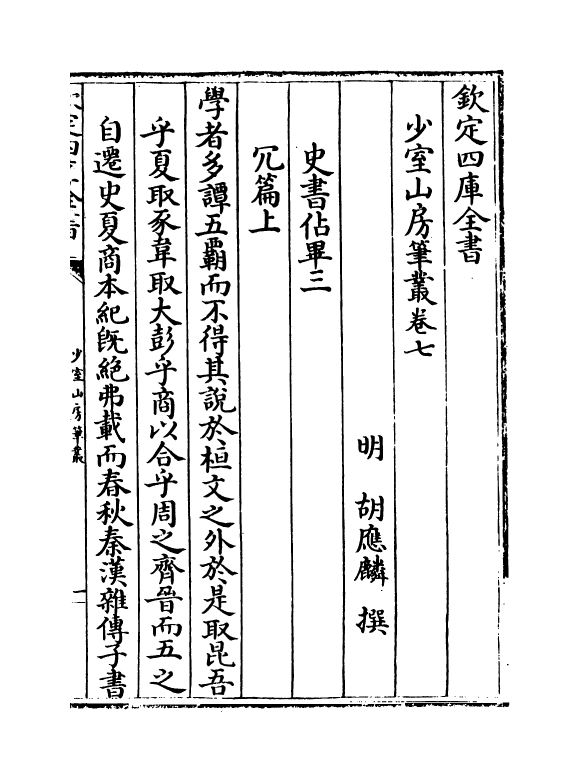 欽定四庫全書
少室山房筆叢卷七
明 胡應麟 撰
史書佔畢三
冗篇上
學者多譚五霸而不得其說於桓文之外於是取昆吾
乎夏取豕韋取大彭乎商以合乎周之齊晉而五之
自遷史夏商本紀旣絕弗載而春秋秦漢雜傳子書
少室山房筆叢
一